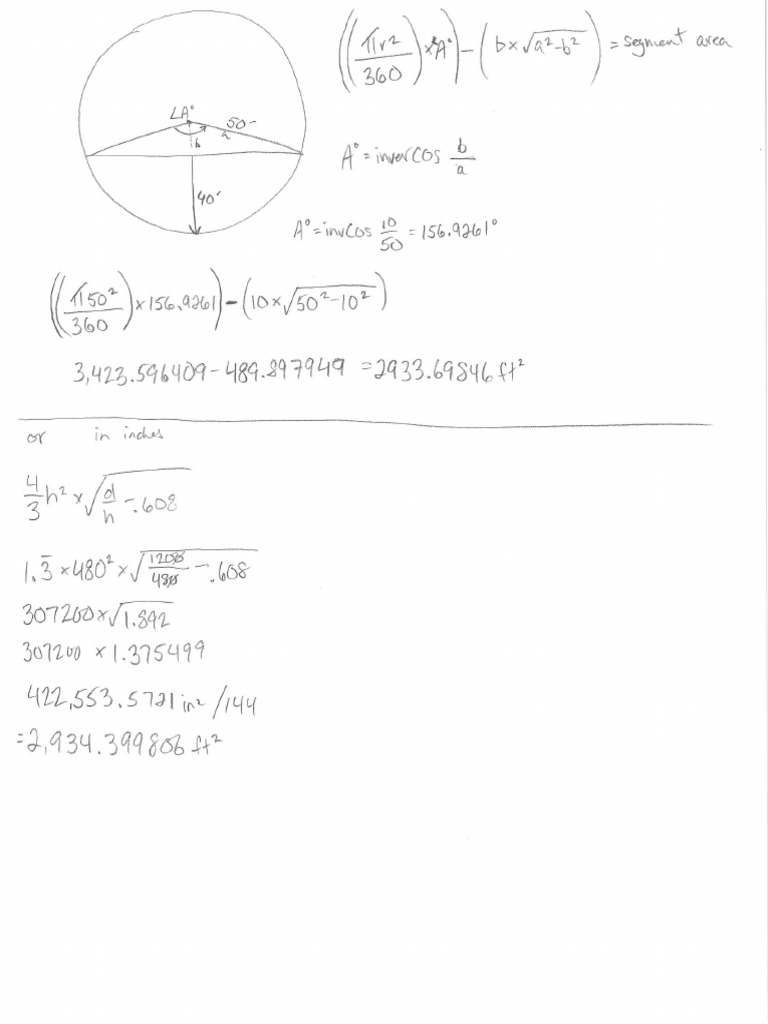 ((πr²/360) × A°) - (b × √a²-b²) = segment area
∠A°
50-
a
b
40'
A° = inver cos b/a
A° = invCos 10/50 = 156.9261°
((π50²/360) × 156.9261) - (10 × √50²-10²)
3,423.596409 - 489.897949 = 2933.69846 ft²
or in inches
4/3 h² × √d/h - .608
1.3̄ × 480² × √1200/480 - .608
307200 × √1.892
307200 × 1.375499
422,553.5721 in² /144
= 2,934.399806 ft²